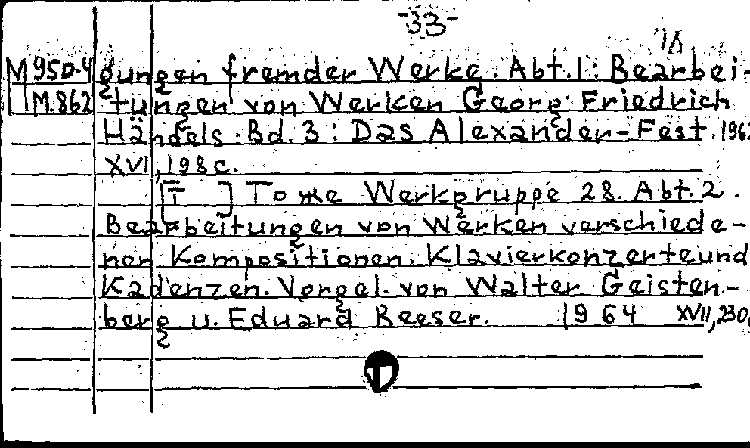 -33-
М950-4 gungen fremder Werke. Abt.1: Bearbei-
М.862 tungen von Werken Georg Friedrich
Händels. Bd. 3: Das Alexander-Fest. 196
XVI, 198 с.
[Т ] То же Werkgruppe 28. Abt. 2.
Bearbeitungen von Werken verschiede-
ner Kompositionen. Klavierkonzerte und
Kadenzen. Vorgel. von Walter Geisten-
berg u. Eduard Reeser. 1964 XVII, 230,